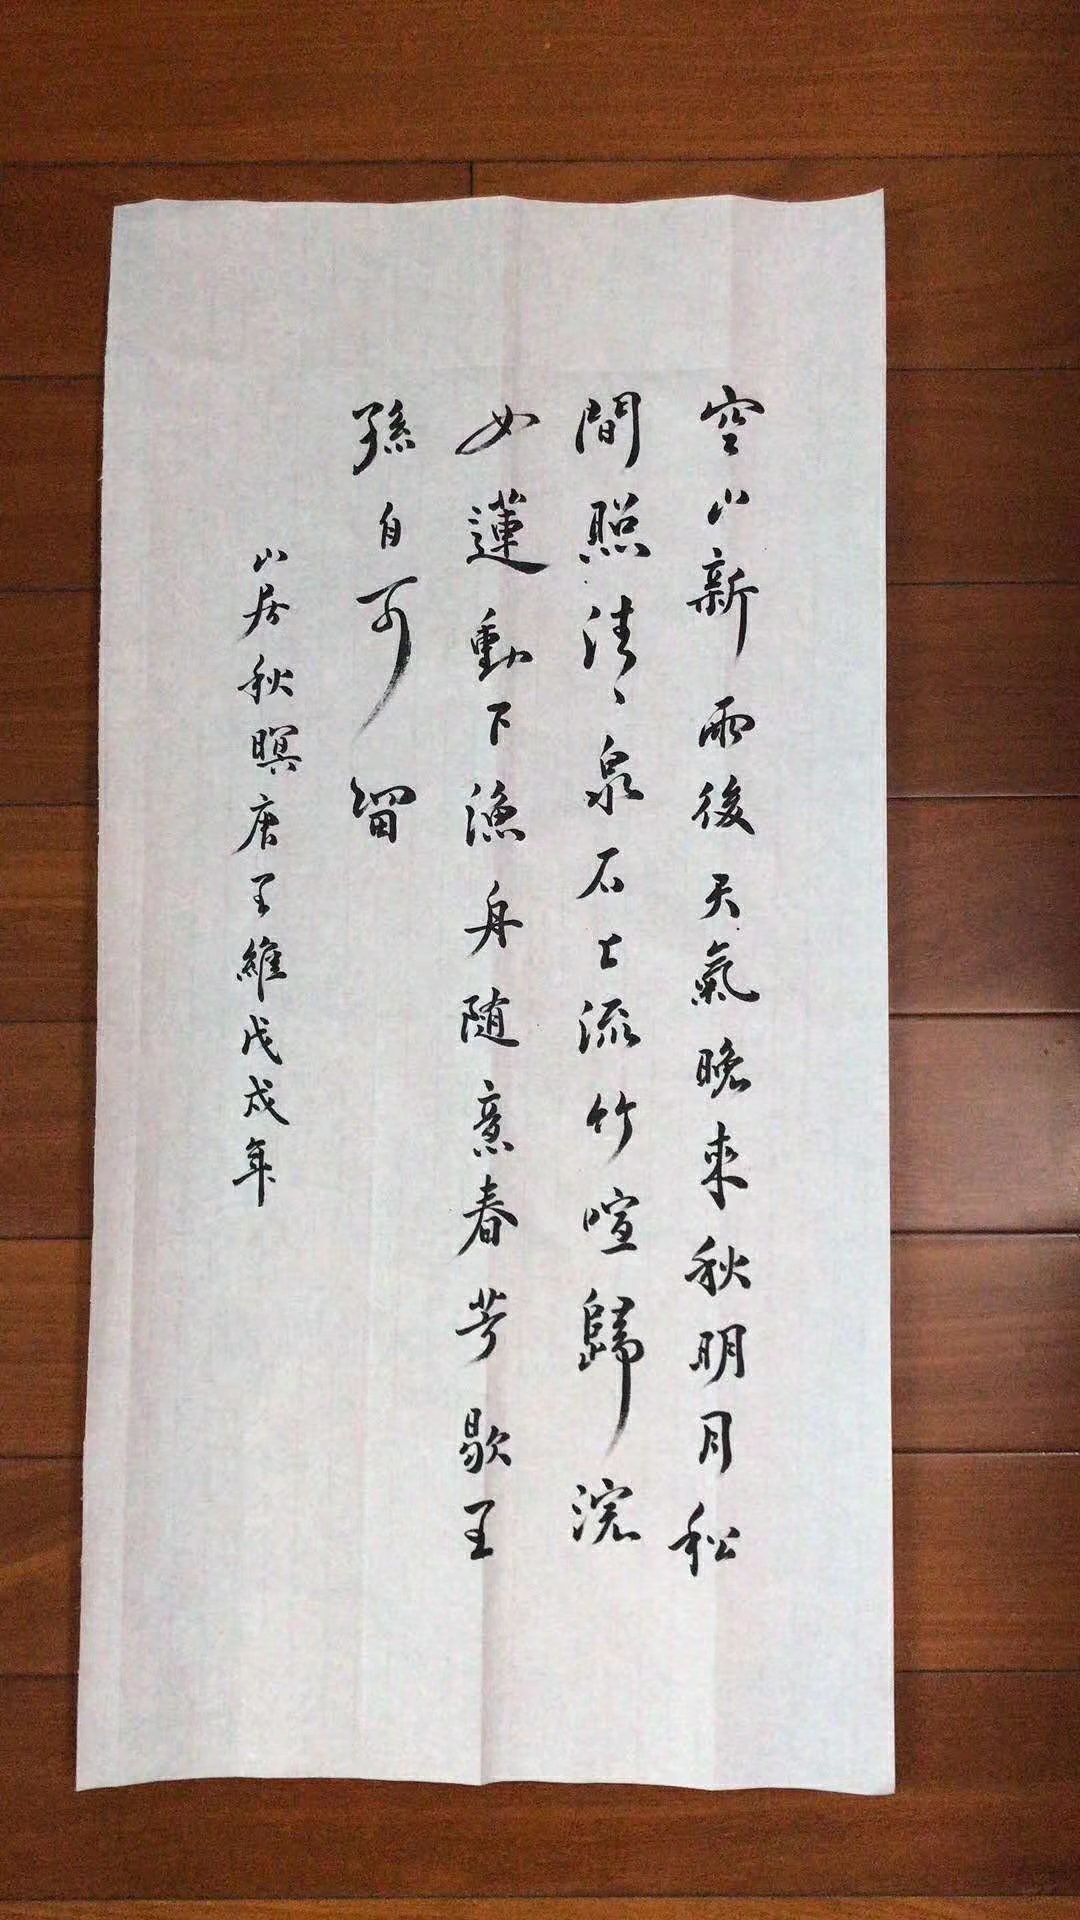 空山新雨後天氣晚來秋明月松
間照清泉石上流竹喧歸浣
女蓮動下漁舟随意春芳歇王
孫自可留
山居秋暝唐王維戊戌年